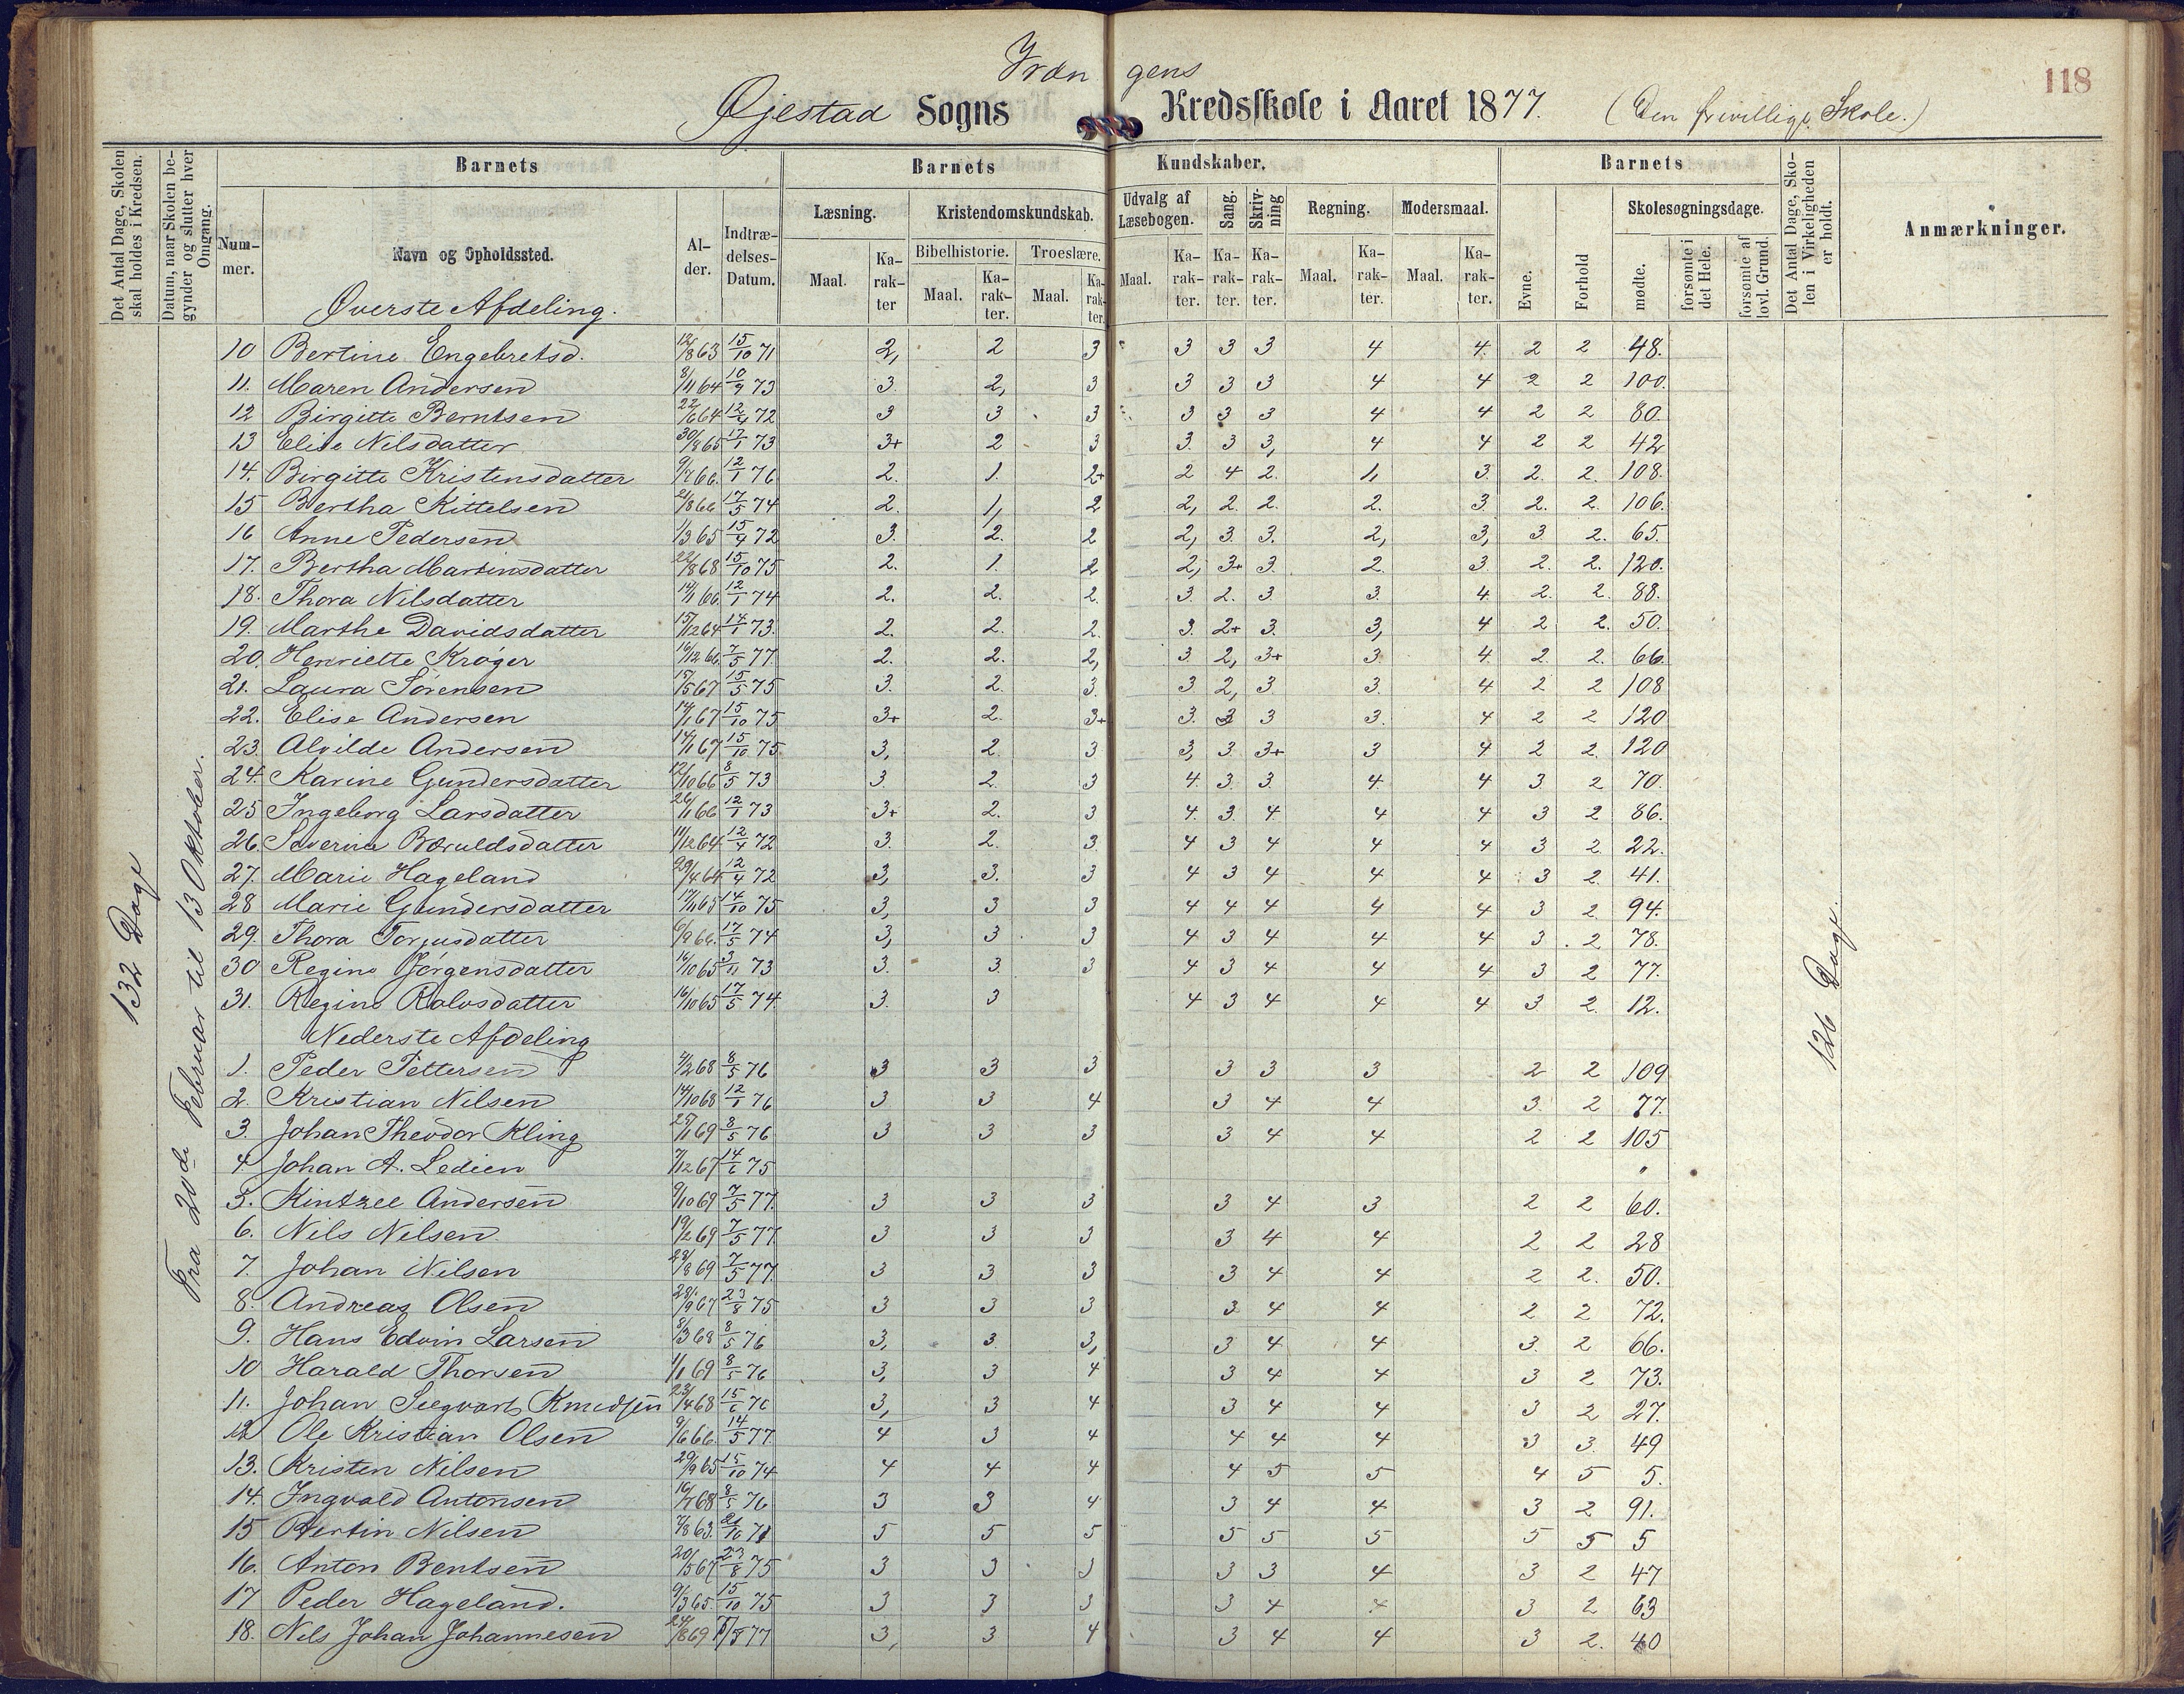 118
Vræn gens
Øjestad Sogns Kredsskole i Aaret 1877. (Den frivillige Skole.)
Det Antal Dage, Skolen skal holdes i Kredsen.
Datum, naar Skolen begynder og slutter hver Omgang.
Barnets
Nummer.
Navn og Opholdssted.
Alder.
Indtrædelses-Datum.
Barnets Kundskaber.
Læsning. Maal. Karakter
Kristendomskundskab.
Bibelhistorie. Maal. Karakter.
Troeslære. Maal. Karakter.
Udvalg af Læsebogen. Maal. Karakter.
Sang. Karakter.
Skrivning Karakter.
Regning. Maal. Karakter.
Modersmaal. Maal. Karakter.
Barnets
Evne. Forhold
Skolesøgningsdage.
mødte. forsømte i det Hele. forsømte af lovl. Grund.
Det Antal Dage, Skolen i Virkeligheden er holdt.
Anmærkninger.
132 Dage
Fra 20de Februar til 13 Oktober.
126 Dage.
Øverste Afdeling.
10 Bertine Engebretsd. 12/8 63 15/10 71 2, 2 3 3 3 3 4 4. 2 2 48.
11. Maren Andersen 8/11 64 10/9 73 3. 2, 3 3 3 3 4 4 2 2 100.
12 Birgitte Berntsen 22/6 64 12/4 72 3 3 3 3 3 3 4 4 2 2 80.
13 Elise Nilsdatter 30/8 65 12/1 73 3+ 2 3 3. 3 3, 4 4 2 2 42
14. Birgitte Kristensdatter 9/7 66. 12/1 76 2. 1. 2+ 2 4 2. 1, 3. 2. 2. 108.
15 Bertha Kittelsen 2/8 66 17/5 74 2. 1, 2 2, 2. 2. 2. 3. 2. 2. 106.
16 Anne Pedersen 1/3 65 15/4 72 3. 2. 2 2, 3. 3. 2, 3, 3. 2. 65.
17. Bertha Martinsdatter 22/8 68 15/10 75 2. 1. 2 2, 3+ 3. 2. 3. 2. 2. 120.
18. Thora Nilsdatter 14/1 66. 12/1 74 2. 2. 2. 3. 2. 3. 3. 4. 2. 2. 88.
19. Marthe Davidsdatter 15/12 64 14/1 73. 2. 2. 2. 3. 2+ 3. 3, 4 2 2. 50.
20. Henriette Krøger 16/12 66. 7/5 77. 2. 2. 2, 3. 2, 3+ 3. 4. 2. 2. 66.
21. Laura Sørensen 15/5 67 15/5 75 3. 2. 3. 3 2, 3. 3. 4 2 2 108
22. Elise Andersen 14/1 67 15/10 75 3+ 2. 3+ 3. 3 3 3. 4 2 2 120
23. Alvilde Andersen 14/1 67 15/10 75. 3, 2. 3 3, 3. 3+ 3 4 2 2. 120
24. Karine Gundersdatter 12/10 66 8/5 73 3. 2. 3 4. 3. 3. 4. 4 3. 2 70.
25 Ingeborg Larsdatter 26/1 66 12/1 73 3+ 2. 3 4. 3. 4 4 4 3 2 86.
26. Severine Bæruldsdatter 11/12 64 12/4 72 3. 2. 3. 4 3 4 4 4 3 2. 22.
27. Marie Hageland 29/4 64. 12/4 72 3, 3. 3 4 3 4 4 4 3 2. 41.
28 Marie Gundersdatter 17/11 65 14/10 75 3, 3 3 4 4 4 4 4 3 2. 94.
29. Thora Torjusdatter 6/9 66. 17/5 74 3, 3 3 4 3 4 4 4 3. 2 78.
30 Regine Jørgensdatter 16/10 65 3/11 73 3. 3. 3 4 3 4 4 4 3 2 77.
31. Regine Rolvsdatter 16/10 65 17/5 74 3. 3 4 3 4 4 4 3 2. 12.
Nederste Afdeling
1. Peder Pettersen 4/2 68 8/5 76 3 3 3 3 3 3 2 2 109
2. Kristian Nilsen 14/10 68 12/1 76 3 3 4 3 4 4 3. 2 77.
3. Johan Theodor Kling 25/1 69 8/5 76 3 3 3 3 4 4 2 2 105
4. Johan A. Ledien 7/12 67 14/6 75 "
5. Kintzel Andersen 9/10 69 7/5 77. 3 3 3 3 4 3 2 2 60.
6. Nils Nilsen. 19/2 69 7/5 77 3 3 3 3 4 4 2 2 28
7. Johan Nilsen 28/8 69 7/5 77. 3 3 3 3 4 4 2 2. 50.
8. Andreas Olsen 28/9 67 23/8 75 3 3 3 3 4 4 2 2 72.
9. Hans Edvin Larsen 8/3 68 8/5 76 3, 3. 3, 3 4 4 3. 2 66.
10 Harald Thorsen 1/1 69 8/5 76 3, 3 4 3 4 4 3 2 73.
11. Johan Seegvart Knudsen 23/4 68 15/6 76 3, 3 4 3 4 4 3 2 27.
12 Ole Kristian Olsen 9/6 66. 14/5 77. 4 3 4 4 4 4 3 3. 49
13. Kristen Nilsen 29/9 65 15/10 74 4 4 4 4 5 5 4 5 5.
14. Ingvald Antonsen 16/7 68 8/5 76 3 3 4 3 4 4 3 2 91.
15 Bertin Nilsen 7/8 63. 21/10 71 5 5 5 5 5 5 5 5 5
16. Anton Bentsen 20/5 67 23/8 75 3 3 3 3 3 4 3 2 47
17 Peder Hageland. 9/3 65. 15/10 75 3 3 3 3 4 4 3 2 63
18. Nils Johan Johannesen 24/8 69 7/5 77 3, 3. 4 3 4 4 3 2. 40